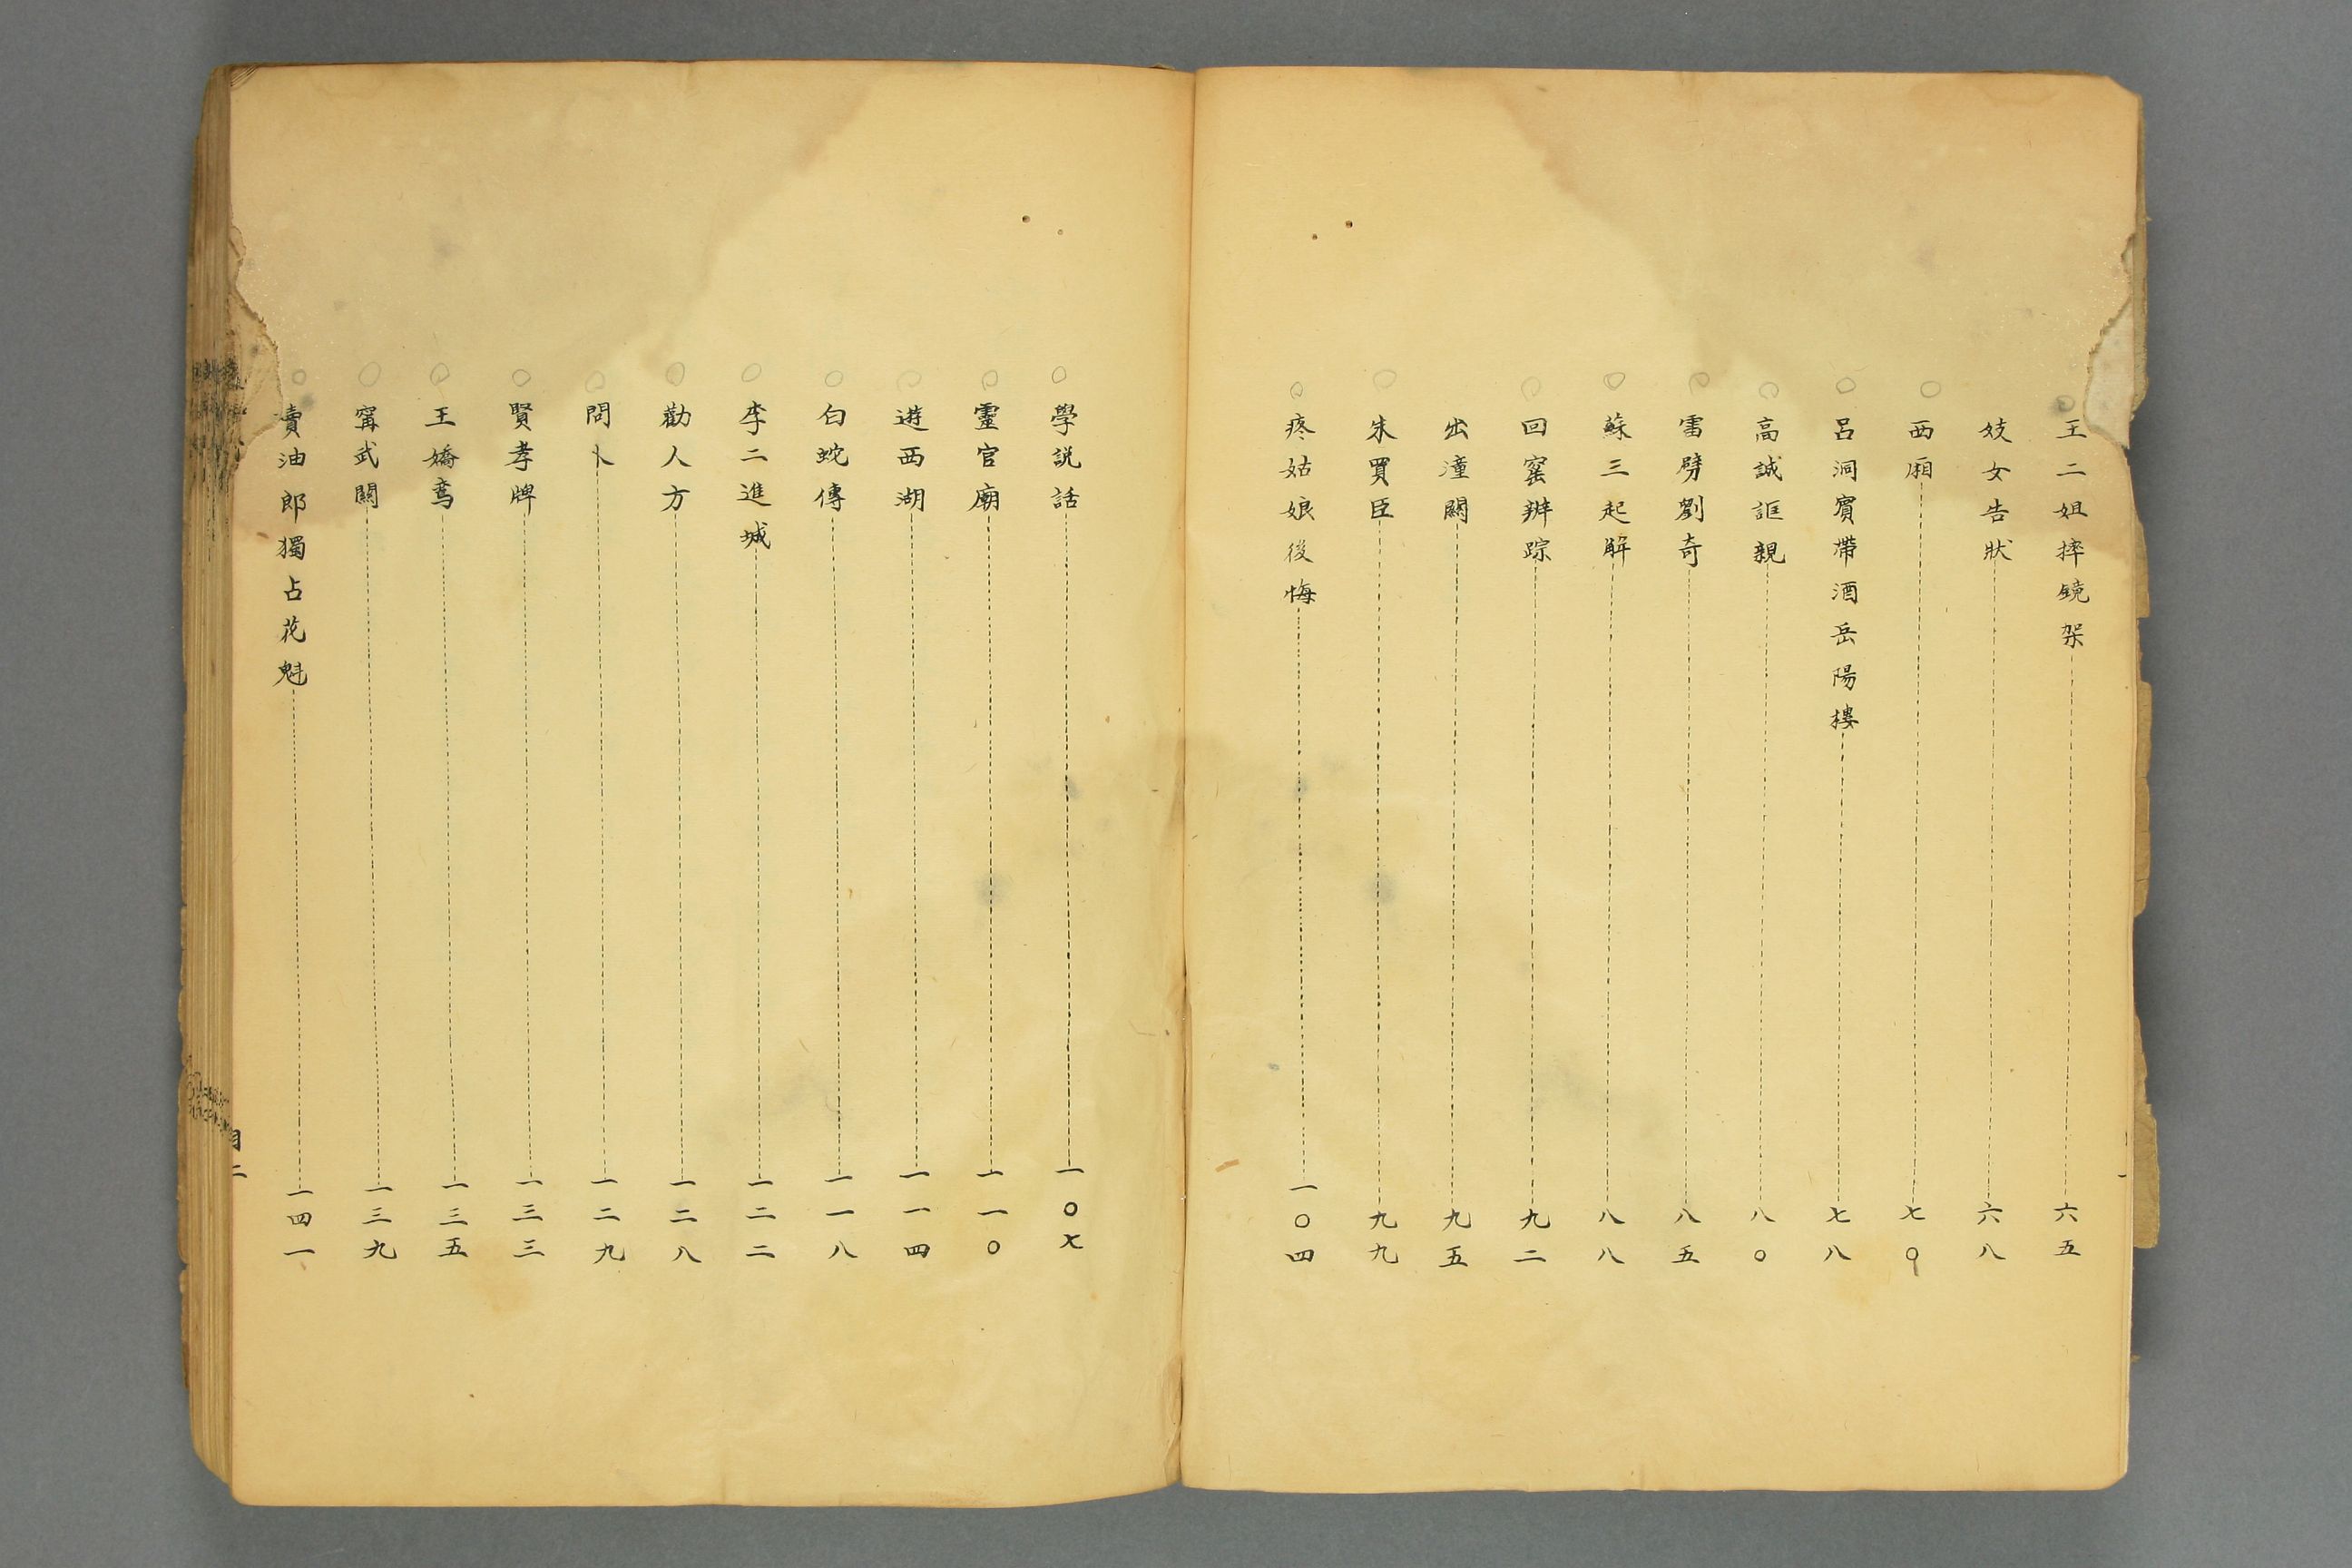 王二姐摔鏡架 六五
妓女告狀 六八
西廂 七〇
呂洞賓帶酒岳陽樓 七八
高誠誆親 八〇
雷劈劉奇 八五
蘇三起解 八八
回窰辦踪 九二
出潼關 九五
朱買臣 九九
疼姑娘後悔 一〇四
學説話 一〇七
靈官廟 一一〇
遊西湖 一一四
白蛇傳 一一八
李二進城 一二二
勸人方 一二八
問卜 一二九
賢孝牌 一三三
王嬌鸾 一三五
甯武關 一三九
賣油郎獨占花魁 一四一
目二